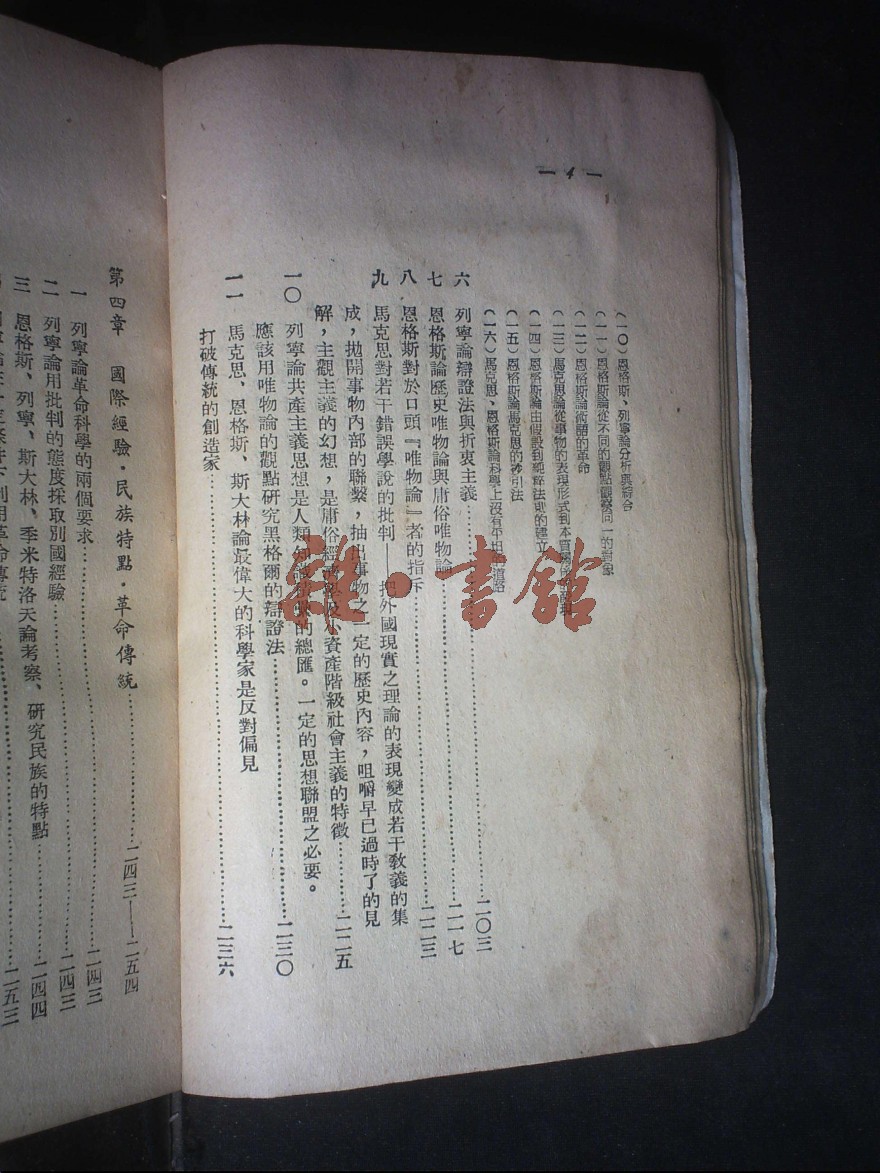 (一〇)恩格斯、列寧論分析與綜合
(一一)恩格斯論從不同的觀點觀察同一的對象
(一二)恩格斯論術語的革命
(一三)馬克思論從事物的表現形式到本質關係
(一四)恩格斯論由假設到純粹法則的建立
(一五)恩格斯論馬克思的秒引法
(一六)馬克思、恩格斯論科學上沒有平坦的道路
六 列寧論辯證法與折衷主義……二〇三
七 恩格斯論歷史唯物論與庸俗唯物論……二一七
八 恩格斯對於口頭『唯物論』者的指斥……二二三
九 馬克思對若干錯誤學說的批判——把外國現實之理論的表現變成若干教義的集
成，拋開事物內部的聯繫，抽出事物之一定的歷史內容，咀嚼早已過時了的見
解，主觀主義的幻想，是庸俗經濟學及小資產階級社會主義的特徵……二二五
一〇 列寧論共產主義思想是人類知識的總匯。一定的思想聯盟之必要。
應該用唯物論的觀點研究黑格爾的辯證法……二三〇
一一 馬克思、恩格斯、斯大林論最偉大的科學家是反對偏見
打破傳統的創造家……二三六
第四章 國際經驗·民族特點·革命傳統……二四三——二五四
一 列寧論革命科學的兩個要求……二四三
二 列寧論用批判的態度採取別國經驗……二四三
三 恩格斯、列寧、斯大林、季米特洛夫論考察、研究民族的特點……二四四
利用革命傳統……二五三
雜·書館